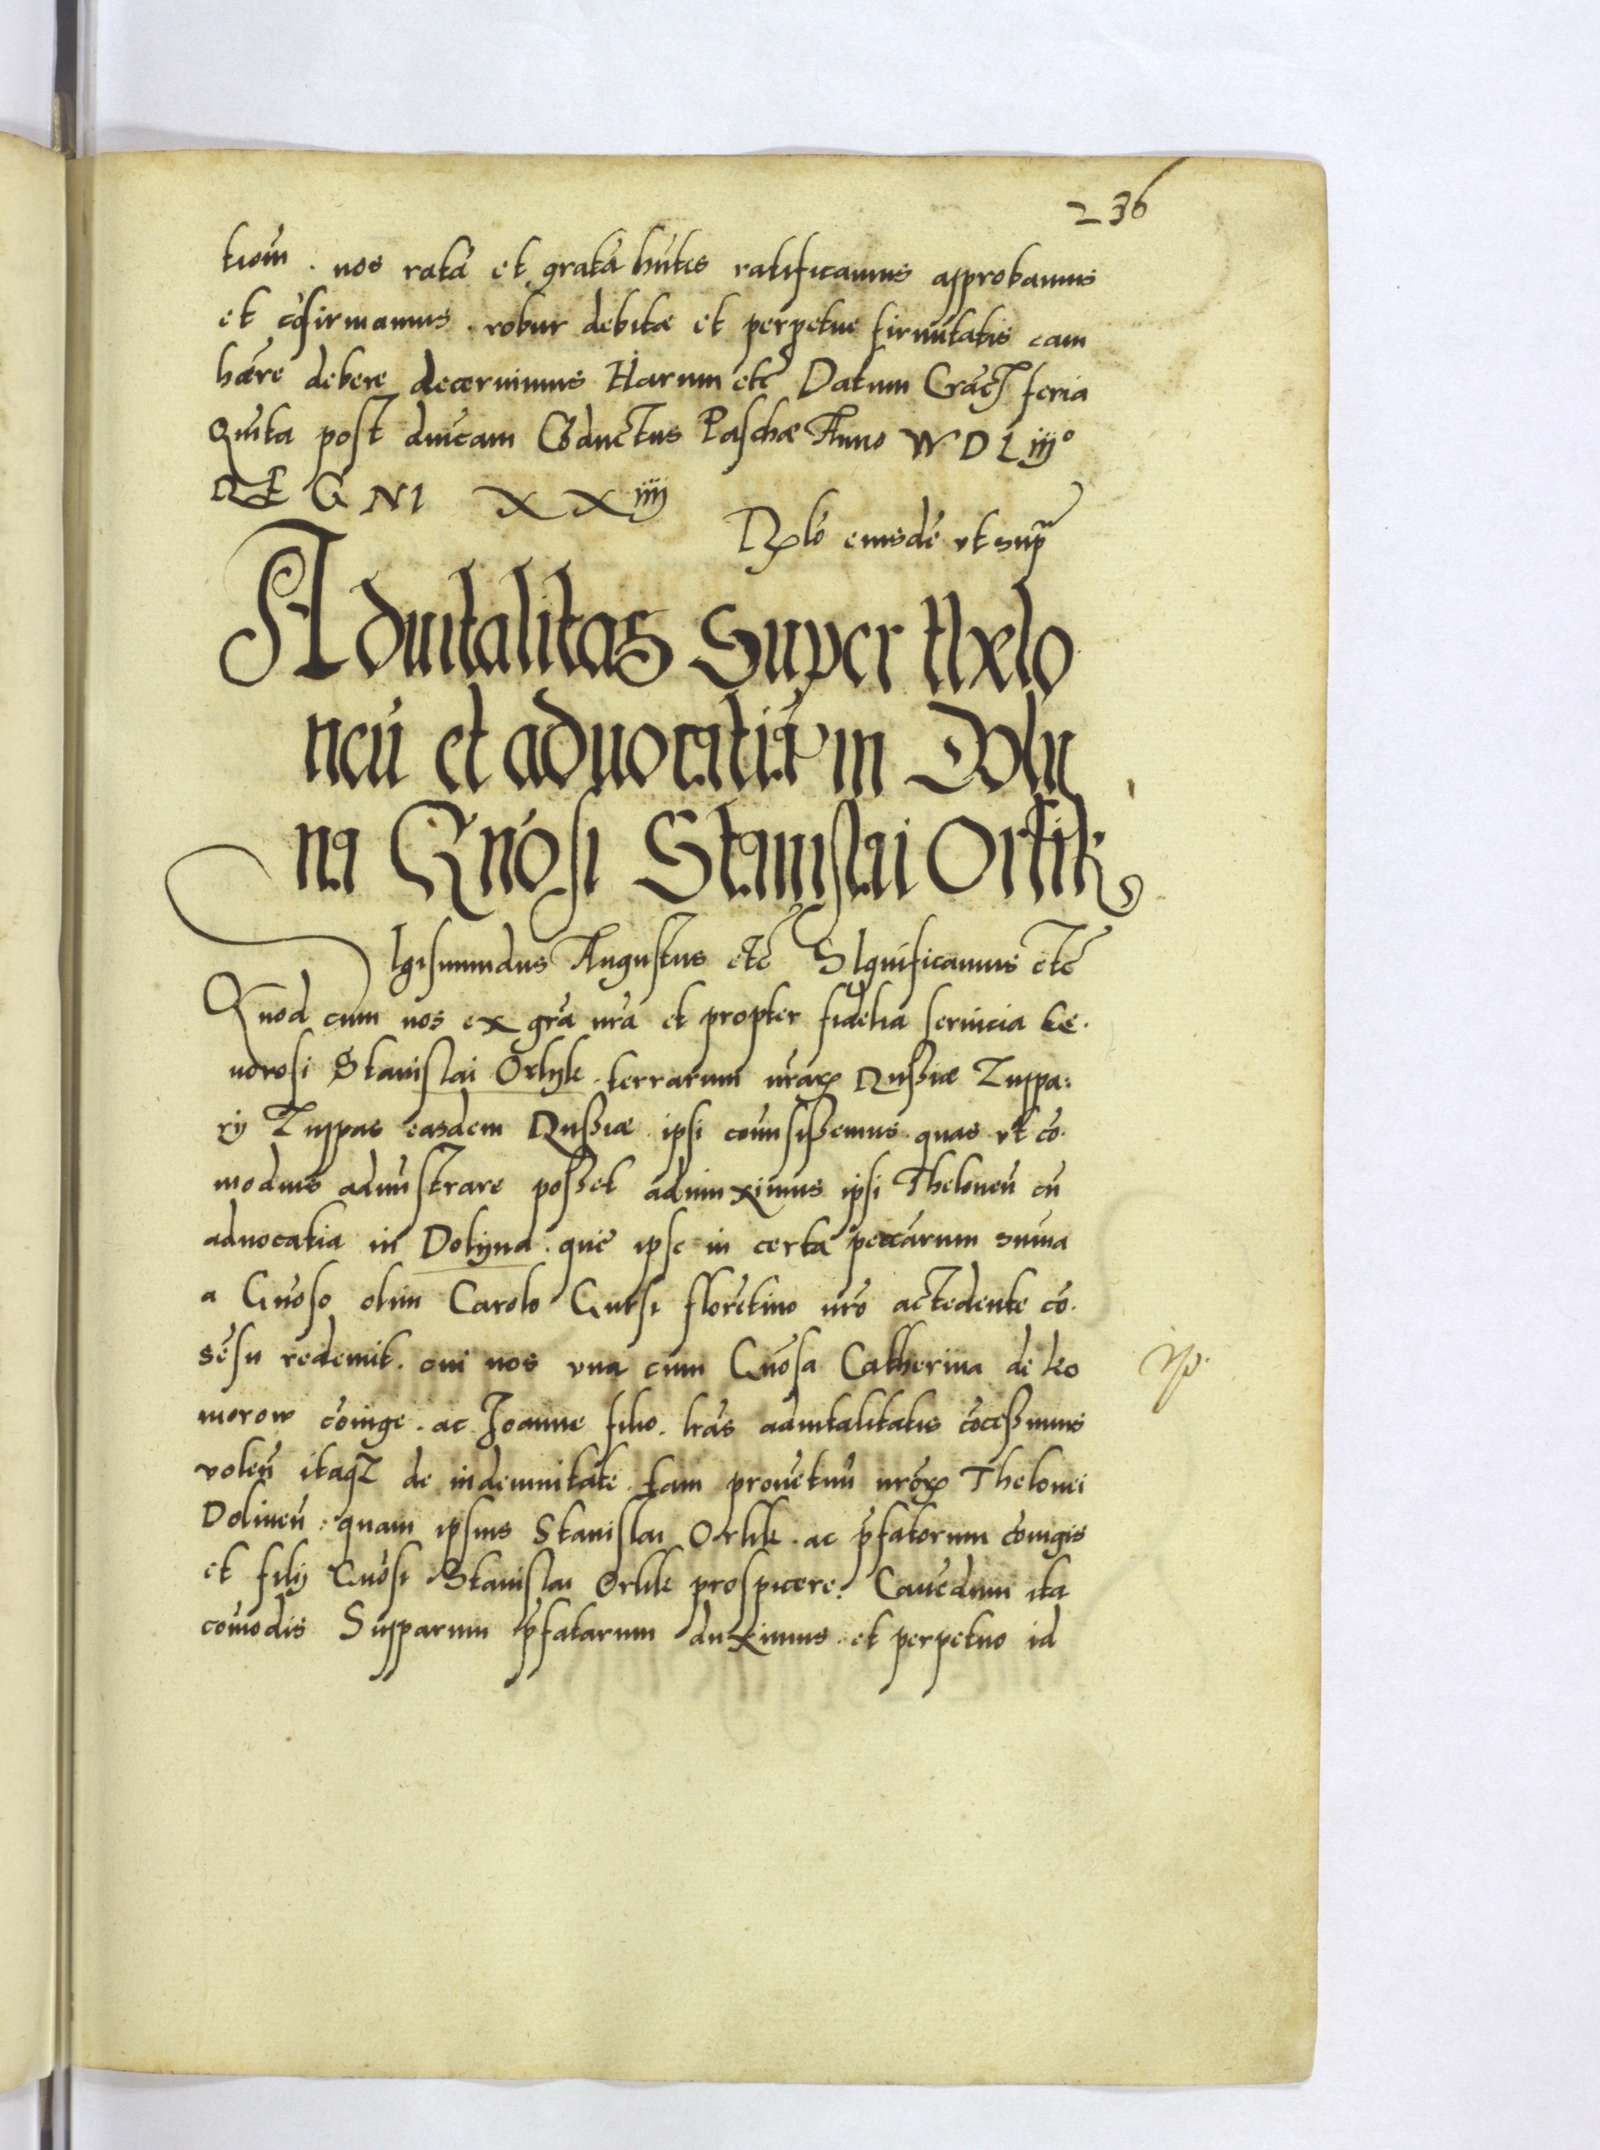 236
tiom̄. nos ratā et gratā hn̄tes ratificamus approbamus
et cōfirmamus. robur debitæ et perpetue firmitatis eam
hēre debere decernimus Harum etc̄ Datum Crac̄ feria
Quīta post dn̄icam Cōductus Paschæ Anno M D L iijº
REGNI XXiiij
Rlō eiusdē vt supr̄
Aduitalitas Super thelo
neū et aduocatiā in Doly
na Gn̄osi Stanislai Orlik
Igismundus Augustus etc̄ SIgnificamus etc̄
Quod cum nos ex grā nrā et propter fidelia seruicia Ge.
norosi Stanislai Orlyk. terrarum nr̄arꝝ Russiæ Zuppa:
rij Zuppas easdem Russiæ. ipsi com̄isissemus. quas vt cō.
modius admīstrare posset adiunximus ipsi Theloneū cū
aduocatia in Dolyna. quē ipse in certa peccārum sum̄a
a Gn̄oso olim Carolo Gutsi florētino nr̄o accedente cō.
sēsu redemit. cui nos vna cum Gn̄osa Catherina de Ko
morow cōiuge. ac Joanne filio. lr̄as aduitalitatis cōcessimus
volen̄ itaqꝫ de indemnitate tam prouētuū nr̄orꝝ Thelonei
Dolinen̄: quam ipsius Stanislai Orlik. ac p̄fatorum cōiugis
et filij Gn̄osi Stanislai Orlik prospicere: Cauēdum ita
com̄odis Supparum p̄fatarum duximus. et perpetuo id